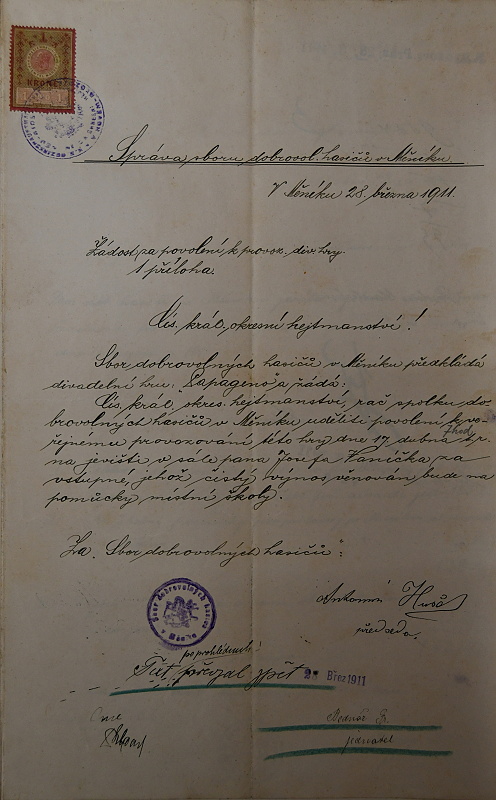 1
KRONE
Správa sboru dobrovol. hasičů v Měníku.
V Měníku 28. března 1911.
Žádost za povolení k provoz. div. hry.
1 příloha.
Cís. král. okresní hejtmanství!
Sbor dobrovolných hasičů v Měníku předkládá
divadelní hru: a žádá:
Cís. král. okres. hejtmanství, rač spolku do-
brovolných hasičů v Měníku uděliti povolení k ve-
řejnému provozování této hry dne 17. dubna t. r.
na jevišti v sále pana Josefa Vaníčka za
vstupné, jehož čistý výnos věnován bude na
pomůcky místní školy.
Za "Sbor dobrovolných hasičů":
Sbor dobrovolných
Antonín
předseda,
po prohlédnutí
převzal zpět 2 Břez 1911
jednatel